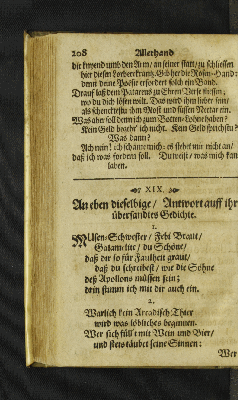 208 Allerhand
die krohend umb den Arm / an seiner statt / zu schliessen
hier diesen Lorbeerkrantz. Gib her die Rosen-Hand:
denn deine Poësie erfordert solch ein Band.
Drauf laß dem Patarens zu Ehren Verse fliessen;
wo du dich lösen wilt. Das wird ihm lieber seyn /
als schencktestu ihm Most und süssen Nectar ein.
Was aber soll denn ich zum Botten-Lohne haben?
Kein Geld begehr' ich nicht. Kein Geld sprichstu?
Was dann?
Ach nein! ich schäme mich: es stehet mir nicht an /
daß ich was fordern soll. Du weist / was mich kan
laben.
XIX.
An eben dieselbige / Antwort auff ihr
übersandtes Gedichte.
1.
MUsen-Schwester / Febi Braut /
Galamelite / du Schöne /
daß dir so für Faulheit graut /
daß du schreibest / wie die Söhne
deß Apollons müssen seyn;
drin stimm ich mit dir auch ein.
2.
Warlich kein Arcadisch Thier
wird was löbliches beginnen.
Wer sich füllt mit Wein und Bier /
und stets täubet seine Sinnen;
Wer